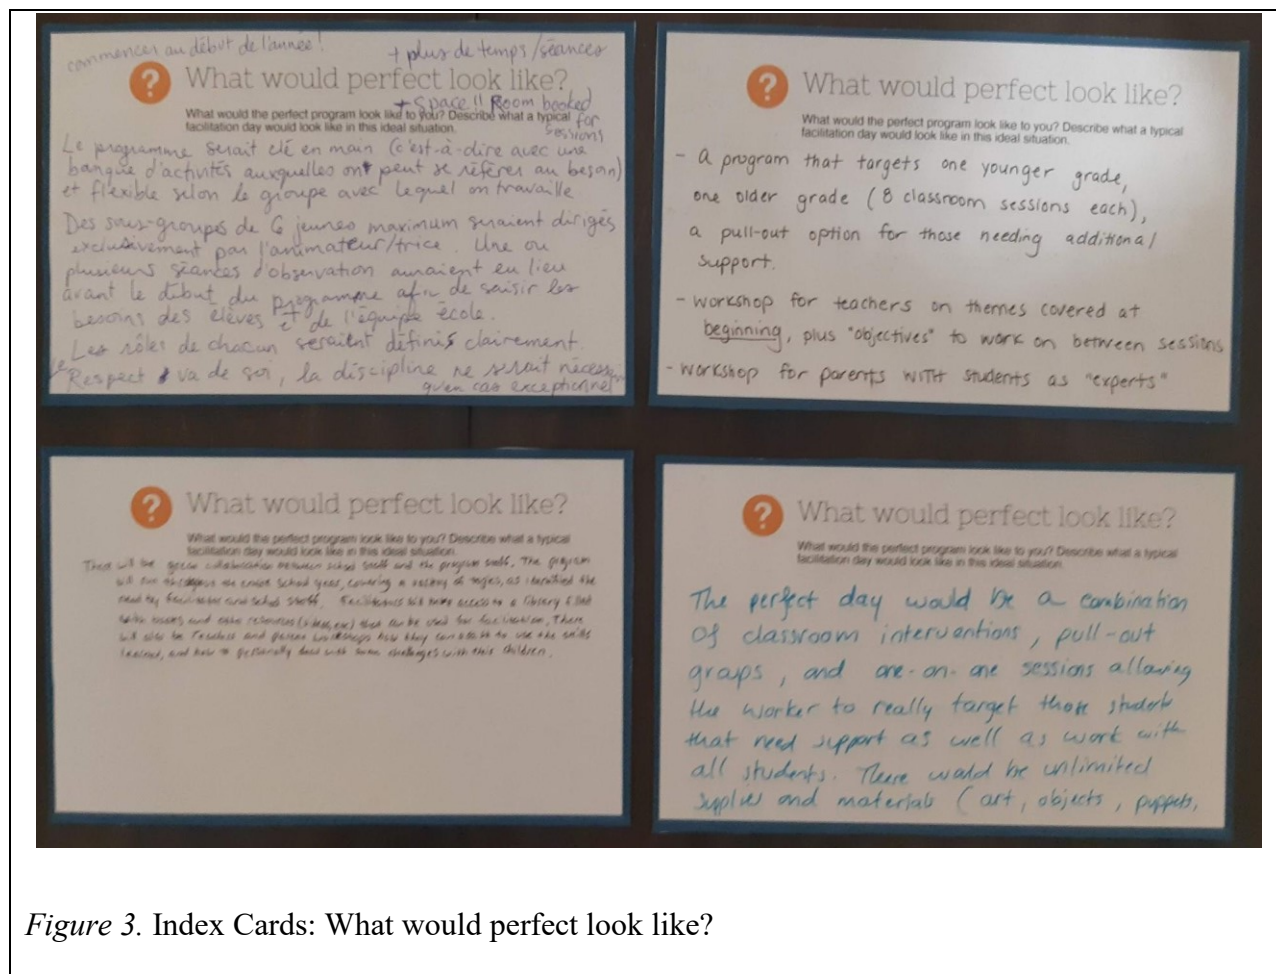 commencer au début de l'année!
+ plus de temps/séances
What would perfect look like?
+ space!! Room booked for sessions
What would the perfect program look like to you? Describe what a typical
facilitation day would look like in this ideal situation.
Le programme serait clé en main (c'est-à-dire avec une
banque d'activités auxquelles on peut se référer au besoin)
et flexible selon le groupe avec lequel on travaille
Des sous-groupes de 6 jeunes maximum seraient dirigés
exclusivement par l'animateur/trice. Une ou
plusieurs séances d'observation auraient eu lieu
avant le début du programme afin de saisir les
besoins des élèves et de l'équipe école.
Les rôles de chacun seraient définis clairement.
Le Respect va de soi, la discipline ne serait nécessaire
qu'en cas exceptionnel
What would perfect look like?
What would the perfect program look like to you? Describe what a typical
facilitation day would look like in this ideal situation.
- a program that targets one younger grade,
one older grade (8 classroom sessions each),
a pull-out option for those needing additional
support.
- workshop for teachers on themes covered at
beginning, plus "objectives" to work on between sessions
- workshop for parents WITH students as "experts"
What would perfect look like?
What would the perfect program look like to you? Describe what a typical
facilitation day would look like in this ideal situation.
There will be great collaboration between school staff and the program staff. The program
will run throughout the entire school year, covering a variety of topics, as identified the
need by facilitator and school staff. Facilitators will have access to a library filled
with books and other resources (videos, etc) that can be used for facilitation. There
will also be Teachers and parent workshops how they can to use the skills
learned, and how to personally deal with some challenges with this children.
What would perfect look like?
What would the perfect program look like to you? Describe what a typical
facilitation day would look like in this ideal situation.
The perfect day would be a combination
of classroom interventions, pull-out
groups, and one-on-one sessions allowing
the worker to really target those students
that need support as well as work with
all students. There would be unlimited
supplies and materials (art, objects, puppets,
Figure 3. Index Cards: What would perfect look like?